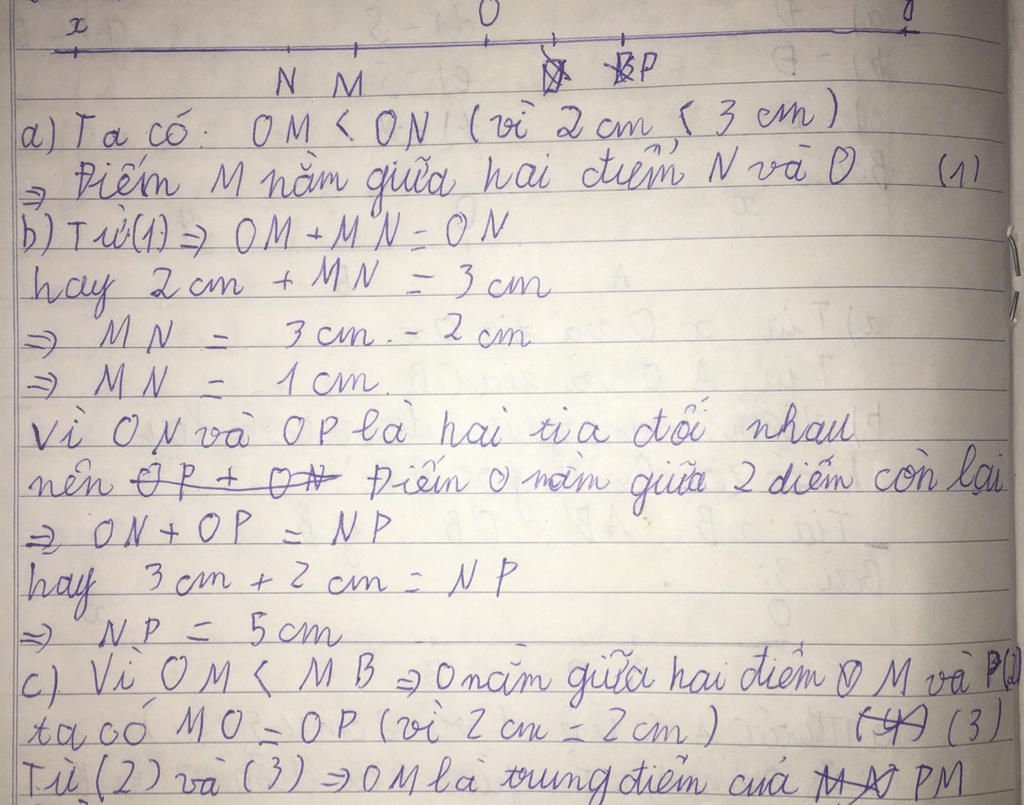 x O y
N M P
a) Ta có: OM < ON (vì 2 cm < 3 cm)
=> Điểm M nằm giữa hai điểm N và O (1)
b) Từ (1) => OM + MN = ON
hay 2 cm + MN = 3 cm
=> MN = 3 cm - 2 cm
=> MN = 1 cm
Vì ON và OP là hai tia đối nhau
nên OP + ON Điểm O nằm giữa 2 điểm còn lại
=> ON + OP = NP
hay 3 cm + 2 cm = NP
=> NP = 5 cm
c) Vì OM < MB => O nằm giữa hai điểm M và P (2)
ta có MO = OP (vì 2 cm = 2 cm) (4) (3)
Từ (2) và (3) => OM là trung điểm của MN PM